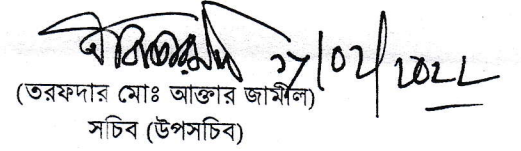 ২৮/০২/২০২২
(তরফদার মোঃ আক্তার জামীল)
সচিব (উপসচিব)